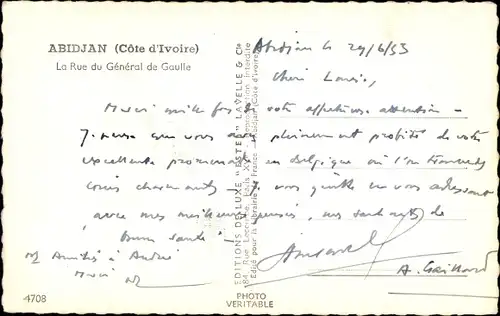 ABIDJAN (Côte d'Ivoire)
La Rue du Général de Gaulle
Abidjan le 29/6/53
Cher Louis,
Merci mille fois de votre affectueuse attention -
J' pense que vous avez pleinement profité de votre
excellente promenade en Belgique où l'on
coins charmants - Je vous quitte en vous adressant
avec mes meilleures pensées, mes souhaits de
bonne santé -
Amitiés à André
Merci
A. Gaillard
EDITIONS DE LUXE "ESTEL" LAVELLE & Cie
84, Rue Lecourbe, PARIS XV - Reproduction Interdite
Edité pour la Librairie de France - Abidjan (Côte d'Ivoire)
4708
PHOTO
VERITABLE